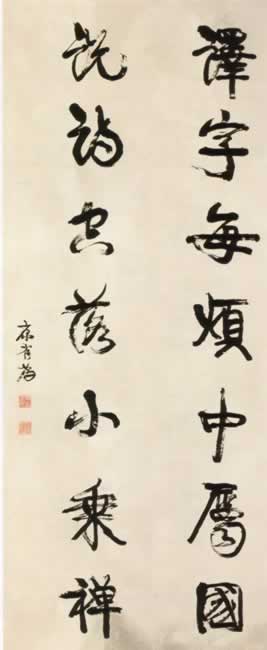 譯字每煩中屬國
說詩落小乘禪
康有為